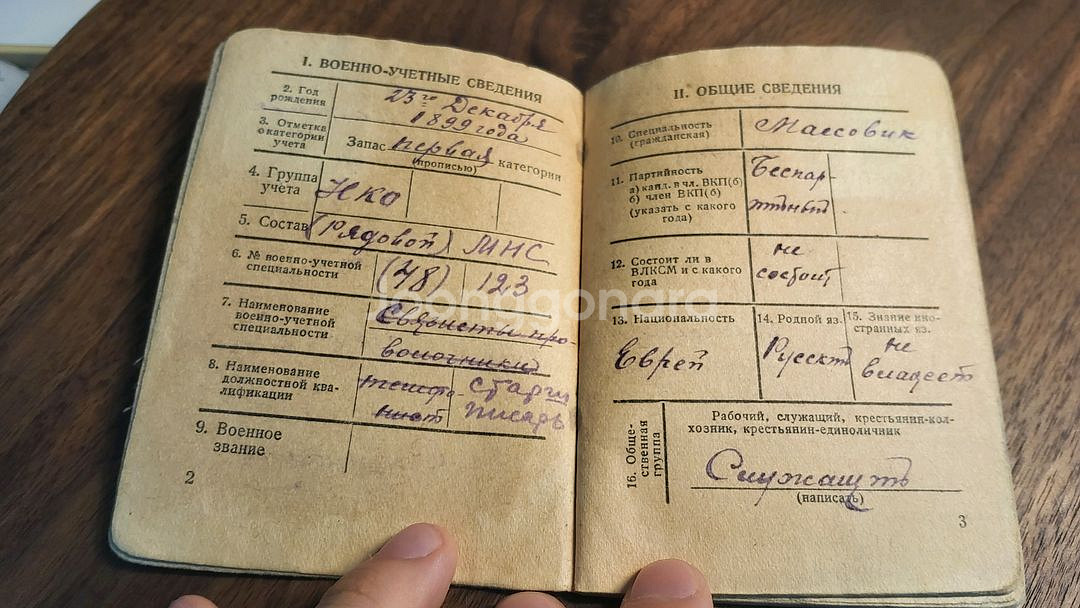 I. ВОЕННО-УЧЕТНЫЕ СВЕДЕНИЯ
2. Год
рождения
23го Декабря
1899 года
3. Отметка
о категории
учета
Запас первая категории
(прописью)
4. Группа
учета
НКО
5. Состав (Рядовой) МНС
6. № военно-учетной
специальности
(48) 123
7. Наименование
военно-учетной
специальности
Связисты про-
волочники
8. Наименование
должностной ква-
лификации
телефо-
нист
старш
писарь
9. Военное
звание
2
II. ОБЩИЕ СВЕДЕНИЯ
10. Специальность
(гражданская)
Массовик
11. Партийность
а) канд. в чл. ВКП(б)
б) член ВКП(б)
(указать с какого
года)
Беспар-
тный
12. Состоит ли в
ВЛКСМ и с какого
года
не
состоит
13. Национальность
Еврей
14. Родной яз.
Русский
15. Знание ино-
странных яз.
не
владеет
16. Обще-
ственная
группа
Рабочий, служащий, крестьянин-кол-
хозник, крестьянин-единоличник
Служащий
(написать)
3